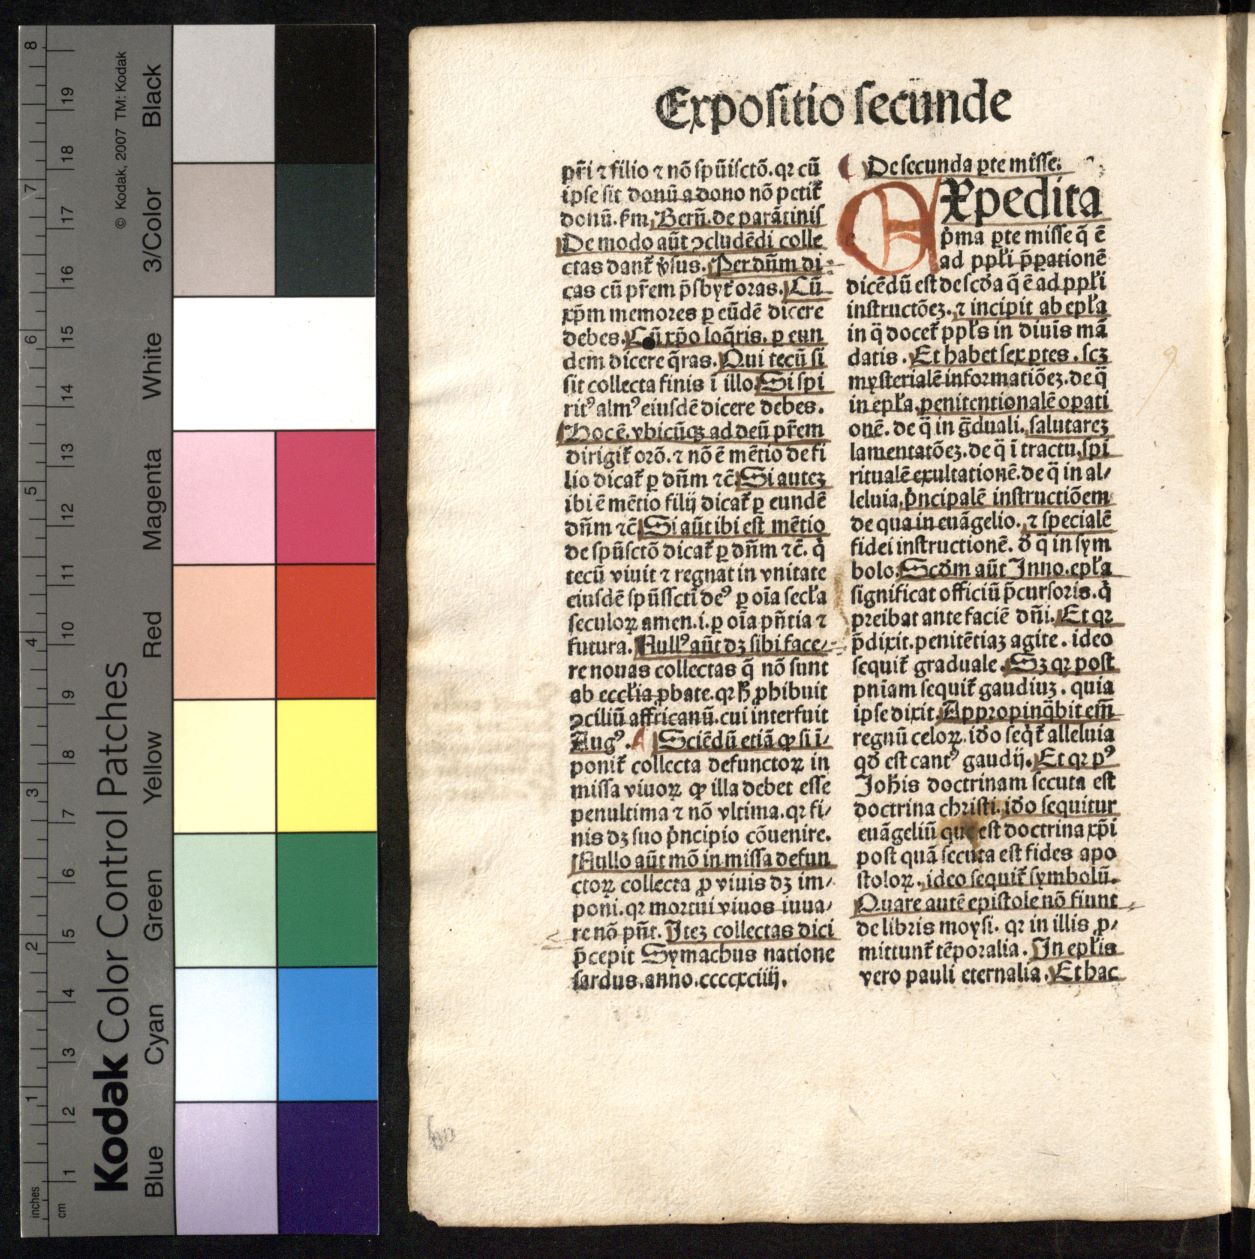 Expositio secunde
pr̄i ⁊ filio ⁊ nō spūiſctō. qꝛ cū
ipse sit donū a dono nō petit᷑
donū. ẜm Berñ. de parātinis
De modo aūt ꝯcludēdi colle
ctas dant᷑ ꝟsus. Per dn̄m di
cas cū pr̄em p̄sbyt᷑ oras. Cū
xp̄m memores ꝑ eūdē dicere
debes. Cū xp̄o loq̄ris. ꝑ eun
dem dicere q̄ras. Qui tecū si
sit collecta finis ī illo. Si spi
ritꝰ almꝰ eiusdē dicere debes.
Hoc ē. vbicūqꝫ ad deū pr̄em
dirigit᷑ orō. ⁊ nō ē mētio de fi
lio dicat᷑ ꝑ dn̄m ⁊c̄. Si auteꝫ
ibi ē mētio filij dicat᷑ ꝑ eundē
dn̄m ⁊c̄. Si aūt ibi est mētio
de spūsctō dicat᷑ ꝑ dn̄m ⁊c̄. q̇
tecū viuit ⁊ regnat in vnitate
eiusdē spūſscti deꝰ ꝑ oīa secl̄a
seculoꝝ amen. i. ꝑ oīa pn̄tia ⁊
futura. Nullꝰ aūt dꝫ sibi face⸗
re nouas collectas q̄ nō sunt
ab eccl̄ia ꝓbate. qꝛ ħ ꝓhibuit
ꝯciliū affricanū. cui interfuit
Augꝰ. Sciēdū etiā ꝙ si ī⸗
ponit᷑ collecta defunctoꝝ in
missa viuoꝝ ꝙ illa debet esse
penultima ⁊ nō vltima. qꝛ fi⸗
nis dꝫ suo p̄ncipio cōuenire.
Nullo aūt mō in missa defun
ctoꝝ collecta ꝓ viuis dꝫ im⸗
poni. qꝛ mortui viuos iuua⸗
re nō pn̄t. Iteꝫ collectas dici
p̄cepit Symachus natione
sardus. anno. ccccxciiij.
De secunda ꝑte misse.
Expedita
p̄ma ꝑte misse q̄ ē
ad ppl̄i p̄ꝑationē
dicēdū est de scd̄a q̄ ē ad ppl̄i
instructōeꝫ. ⁊ incipit ab epl̄a
in q̄ docet᷑ ppl̄s in diuis mā
datis. Et habet sex ꝑtes. scꝫ
mysterialē informatiōeꝫ. de q̄
in epl̄a. penitentionalē oꝑati
onē. de q̄ in g̅duali. salutareꝫ
lamentatōeꝫ. de q̄ ī tractu. spi
ritualē exultationē. de q̄ in al⸗
leluia. p̄ncipalē instructiōem
de qua in euāgelio. ⁊ specialē
fidei instructionē. đ q̄ in sym
bolo. Scd̄m aūt Inno. epl̄a
significat officiū p̄cursoris. q̇
preibat ante faciē dn̄i. Et qꝛ
p̄dixit. penitētiaꝫ agite. ideo
sequit᷑ graduale. Sꝫ qꝛ post
pniam sequit᷑ gaudiuꝫ. quia
ipse dixit. Appropinq̄bit em̄
regnū celoꝝ. iđo seq̇t᷑ alleluia
qđ est cantꝰ gaudij. Et qꝛ pꝰ
Joh̄is doctrinam secuta est
doctrina christi. iđo sequitur
euāgeliū que est doctrina xp̄i
post quā secuta est fides apo
stoloꝝ. ideo sequit᷑ symbolū.
Quare autē epistole nō fiunt
de libris moysi. qꝛ in illis ꝓ⸗
mittunt᷑ tēporalia. In epl̄is
vero pauli eternalia. Et hac
Kodak Color Control Patches
© Kodak, 2007 TM: Kodak
Blue Cyan Green Yellow Red Magenta White 3/Color Black
inches 1 2 3 4 5 6 7 8
cm 1 2 3 4 5 6 7 8 9 10 11 12 13 14 15 16 17 18 19